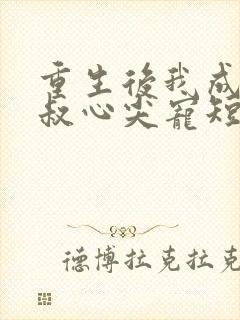 重生後我成
叔心尖寵短
德博拉克拉克